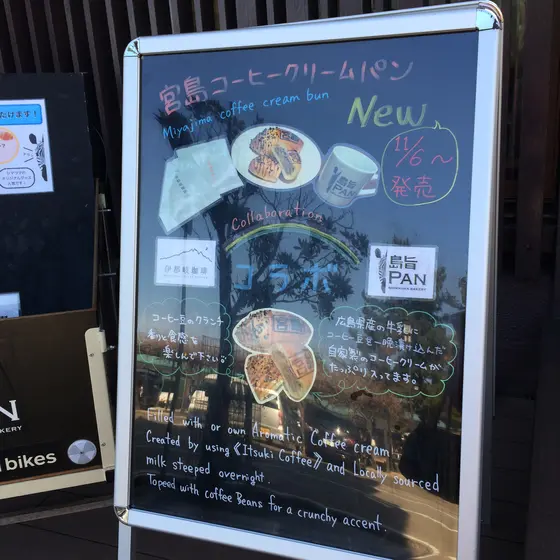 宮島コーヒークリームパン
Miyajima coffee cream bun
New
11/6~
発売
島旨
PAN
Collaboration
コラボ
伊都岐珈琲
島旨
PAN
コーヒー豆のクランチ
香りと食感を
楽しんで下さい。
広島県産の牛乳に
コーヒー豆を一晩漬け込んだ
自家製のコーヒークリームが
たっぷり入ってます。
Filled with or own Aromatic Coffee cream.
Created by using 《Itsuki Coffee》 and Locally sourced
milk steeped overnight.
Topeed with coffee Beans for a crunchy accent.
だけます!
N
KERY
bikes